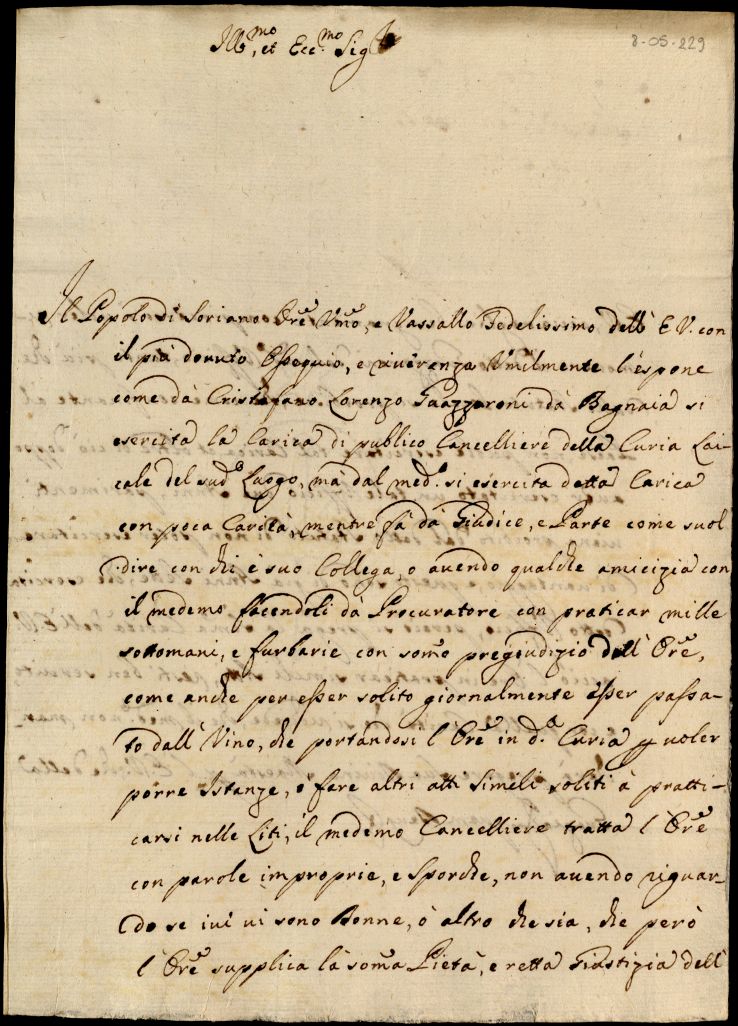 Ill.mo, et Ecc.mo Sig.re
8-05-229
Il Popolo di Soriano Ore Umo, e Vassallo Fedelissimo dell' E V. con
il più dovuto Ossequio, e riverenza Umilmente l'espone
come dà Cristofano Lorenzo Gazzaroni dà Bagnaia si
esercita la Carica di publico Cancelliere della Curia Lai-
cale del sud.o Luogo, mà dal med.o si esercita detta Carica
con poca Carità, mentre fà dà Giudice, e Parte come suol
dire con chi è suo Collega, o avendo qualche amicizia con
il medemo facendoli dà Procuratore con praticar mille
sottomani, e furbarie con somo pregiudizio dell' Ore,
come anche per esser solito giornalmente esser passa-
to dall' Vino, che portandosi l'Ore in d.a Curia p voler
porre Istanze, e fare altri atti simili soliti à pratti-
carsi nelle Liti, il medemo Cancelliere tratta l'Ore
con parole improprie, e sporche, non avendo riguar-
do se ivi vi sono Donne, ò altro che sia, che però
l'Ore supplica la soma Pietà, e retta Giustizia dell'